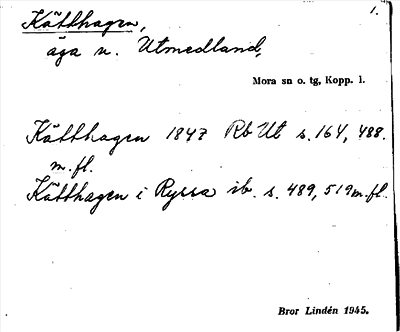 Kätthagen, 1.
äga n. Utmedland,
Mora sn o. tg, Kopp. l.
Kätthagen 1847 Rb Ut s. 164, 488.
m. fl.
Kätthagen i Ryssa ib. s. 489, 519 m. fl.
Bror Lindén 1945.